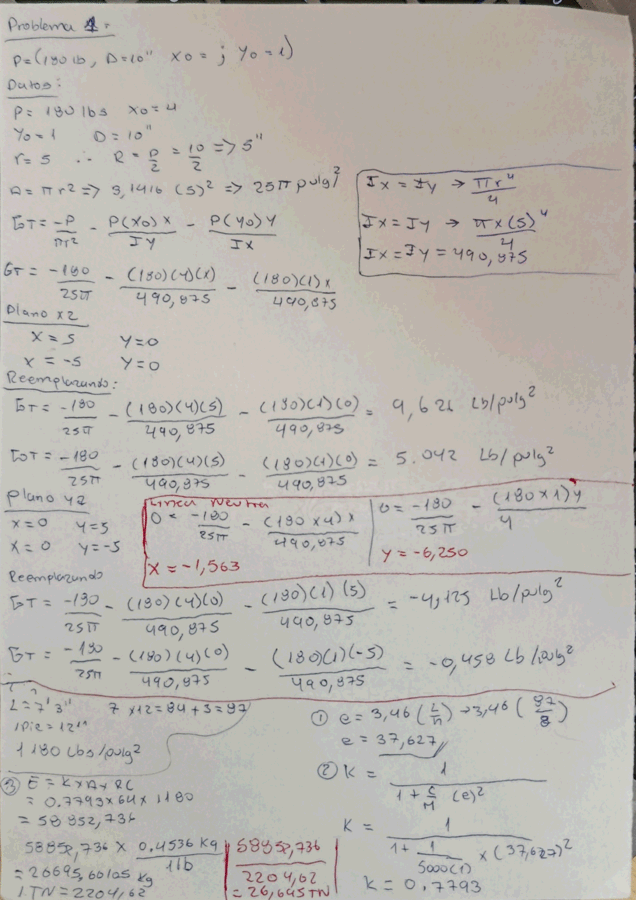 Problema 1:
P=(180 lb, D=10" X0= ; Y0=1)
Datos:
P= 180 lbs X0=4
Y0=1 D=10"
r=5 ∴ R= D/2 = 10/2 => 5"
A= πr² => 3,1416 (5)² => 25π pulg²
GT= -P/πr² - P(X0)X/IY - P(Y0)Y/IX
GT= -180/25π - (180)(4)(X)/490,875 - (180)(1)x/490,875
IX = IY → πr⁴/4
IX= IY → πx(5)⁴/4
IX= IY = 490,875
Plano XZ
X=5 Y=0
X=-5 Y=0
Reemplazando:
GT= -180/25π - (180)(4)(5)/490,875 - (180)(1)(0)/490,875 = 9,626 Lb/pulg²
GT= -180/25π - (180)(4)(5)/490,875 - (180)(1)(0)/490,875 = 5.042 Lb/pulg²
Plano YZ
X=0 Y=5
X=0 Y=-5
Linea Neutra
0= -180/25π - (180 x 4) x/490,875
X= -1,563
0= -180/25π - (180 x 1) Y/4
Y= -6,250
Reemplazando
GT= -180/25π - (180)(4)(0)/490,875 - (180)(1)(5)/490,875 = -4,125 Lb/pulg²
GT= -180/25π - (180)(4)(0)/490,875 - (180)(1)(-5)/490,875 = -0,458 Lb/pulg²
L= 7' 3" 7 x12=84+3=87
1Pie=12"
1180 Lbs/pulg²
① e= 3,46 (L/h) → 3,46 (87/8)
e= 37,627
② K= 1/1+ (e)²
K= 1/1+ 1/5000(1) x (37,627)²
K= 0,7793
③ E= K x A x RC
= 0.7793x64x1180
= 58852,736
58852,736 x 0,4536 kg/1lb
= 26695,60105 kg
1 TN= 2204,62
58852,736/2204,62
= 26,645 TN